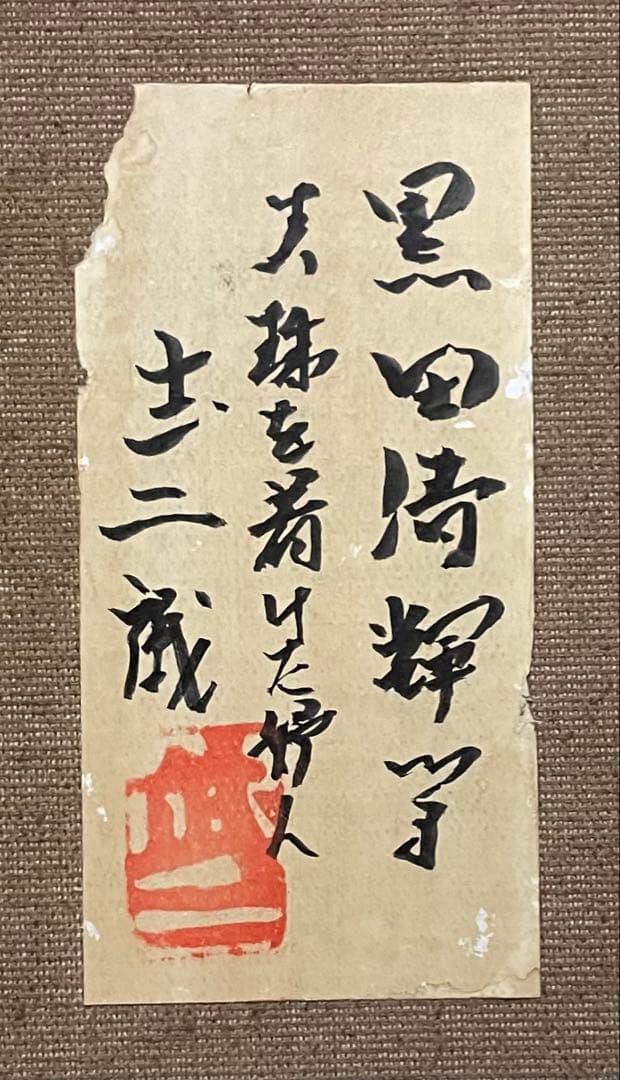 黒田清輝筆
真珠を着けた婦人
武二識